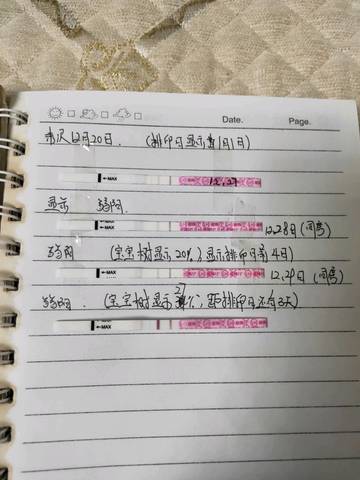 Date. Page.
末次12月20日. (排卵日显示1月1日)
←MAX 12.27
显示 弱阳.
←MAX 12.28日(同房)
弱阳 (宝宝树显示20%,显示排卵日第4日)
←MAX 12.29日(同房)
弱阳. (宝宝树显示27%,距排卵日还有3天)
←MAX